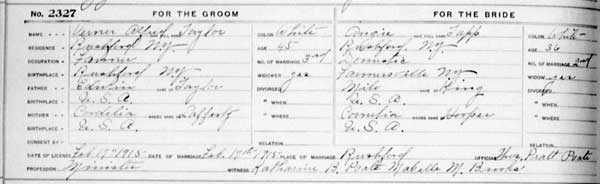 No. 2327 FOR THE GROOM FOR THE BRIDE
NAME Verner Alfred Taylor COLOR White Angie Tapp COLOR White
RESIDENCE Rushford NY AGE 45 Rushford NY AGE 36
OCCUPATION Farmer NO. OF MARRIAGE 3rd Domestic NO. OF MARRIAGE 2nd
BIRTHPLACE Rushford NY WIDOWER yes Farmersville NY WIDOW yes
FATHER Edwin Taylor DIVORCED Milo King DIVORCED
BIRTHPLACE U.S.A. " WHEN U.S.A. " WHEN
MOTHER Cordelia Lafferty " WHERE Cornelia Hooper " WHERE
BIRTHPLACE U.S.A. U.S.A.
CONSENT BY RELATION RELATION
DATE OF LICENSE Feb 17th 1915 DATE OF MARRIAGE Feb. 17th 1915 PLACE OF MARRIAGE Rushford OFFICIAL Pratt Poate
PROFESSION Minister WITNESS Katharine B. Poate Mabelle M. Brooks